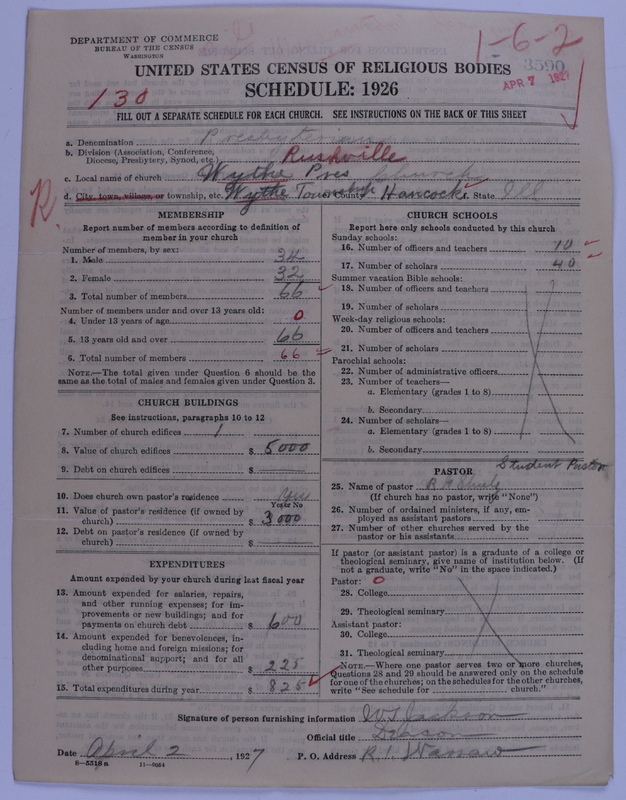 DEPARTMENT OF COMMERCE
BUREAU OF THE CENSUS
WASHINGTON
1-6-2
3590
APR 7 1927
UNITED STATES CENSUS OF RELIGIOUS BODIES
SCHEDULE: 1926
130
FILL OUT A SEPARATE SCHEDULE FOR EACH CHURCH. SEE INSTRUCTIONS ON THE BACK OF THIS SHEET
a. Denomination Presbyterian
b. Division (Association, Conference, Diocese, Presbytery, Synod, etc.) Rushville
c. Local name of church Wythe Pres Church
d. City, town, village, or township, etc. Wythe Township County Hancock f. State Ill
R
MEMBERSHIP
Report number of members according to definition of
member in your church
Number of members, by sex:
1. Male 34
2. Female 32
3. Total number of members 66
Number of members under and over 13 years old:
4. Under 13 years of age 0
5. 13 years old and over 66
6. Total number of members 66
NOTE.—The total given under Question 6 should be the
same as the total of males and females given under Question 3.
CHURCH BUILDINGS
See instructions, paragraphs 10 to 12
7. Number of church edifices 1
8. Value of church edifices $ 5000
9. Debt on church edifices $
10. Does church own pastor's residence Yes
Yes or No
11. Value of pastor's residence (if owned by
church) $ 3000
12. Debt on pastor's residence (if owned by
church) $
EXPENDITURES
Amount expended by your church during last fiscal year
13. Amount expended for salaries, repairs,
and other running expenses; for im-
provements or new buildings; and for
payments on church debt $ 600
14. Amount expended for benevolences, in-
cluding home and foreign missions; for
denominational support; and for all
other purposes $ 225
15. Total expenditures during year $ 825
CHURCH SCHOOLS
Report here only schools conducted by this church
Sunday schools:
16. Number of officers and teachers 10
17. Number of scholars 40
Summer vacation Bible schools:
18. Number of officers and teachers
19. Number of scholars
Week-day religious schools:
20. Number of officers and teachers
21. Number of scholars
Parochial schools:
22. Number of administrative officers
23. Number of teachers—
a. Elementary (grades 1 to 8)
b. Secondary
24. Number of scholars—
a. Elementary (grades 1 to 8)
b. Secondary
PASTOR
Student Pastor
25. Name of pastor R
(If church has no pastor, write "None")
26. Number of ordained ministers, if any, em-
ployed as assistant pastors
27. Number of other churches served by the
pastor or his assistants
If pastor (or assistant pastor) is a graduate of a college or
theological seminary, give name of institution below. (If
not a graduate, write "No" in the space indicated.)
Pastor: 0
28. College
29. Theological seminary
Assistant pastor:
30. College
31. Theological seminary
NOTE.—Where one pastor serves two or more churches,
Questions 28 and 29 should be answered only on the schedule
for one of the churches; on the schedules for the other churches,
write "See schedule for church."
Signature of person furnishing information W.T. Jackson
Official title Deacon
Date April 2, 1927 P. O. Address R.1. Warsaw
8-5518 a 11-9054